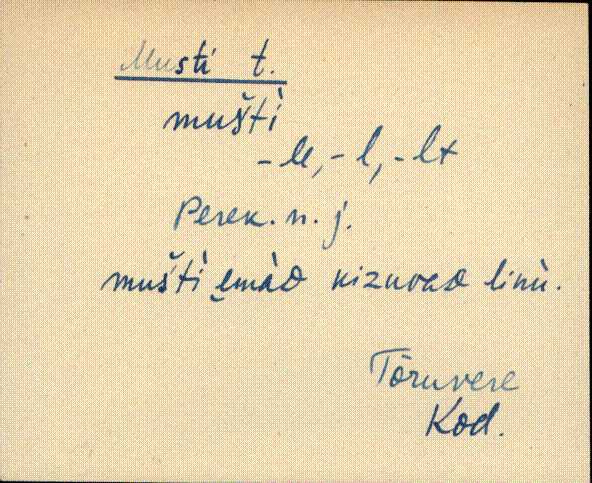 Musti t.
mušti̇̀
-le, -l, -lt
Perek. n. j.
mušti̇̀ ęmàd kizuvad linù.
Tõruvere
Kod.